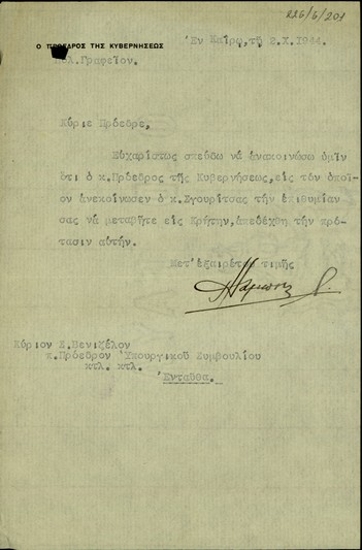 226/6/201
Ο ΠΡΟΕΔΡΟΣ ΤΗΣ ΚΥΒΕΡΝΗΣΕΩΣ
Ἐν Καΐρῳ, τῇ 2.Χ.1944.
Πολ.Γραφεῖον.
Κύριε Πρόεδρε,
Εὐχαρίστως σπεύδω νά ἀνακοινώσω ὑμῖν
ὅτι ὁ κ.Πρόεδρος τῆς Κυβερνήσεως,εἰς τόν ὁποῖον
ἀνεκοίνωσεν ὁ κ.Σγουρίτσας τήν ἐπιθυμίαν
σας νά μεταβῆτε εἰς Κρήτην,ἀπεδέχθη τήν πρό-
τασιν αὐτήν.
Μετ'ἐξαιρέτου τιμῆς
Κύριον Σ.Βενιζέλον
τ.Πρόεδρον Ὑπουργικοῦ Συμβουλίου
κτλ. κτλ.
Ἐνταῦθα.